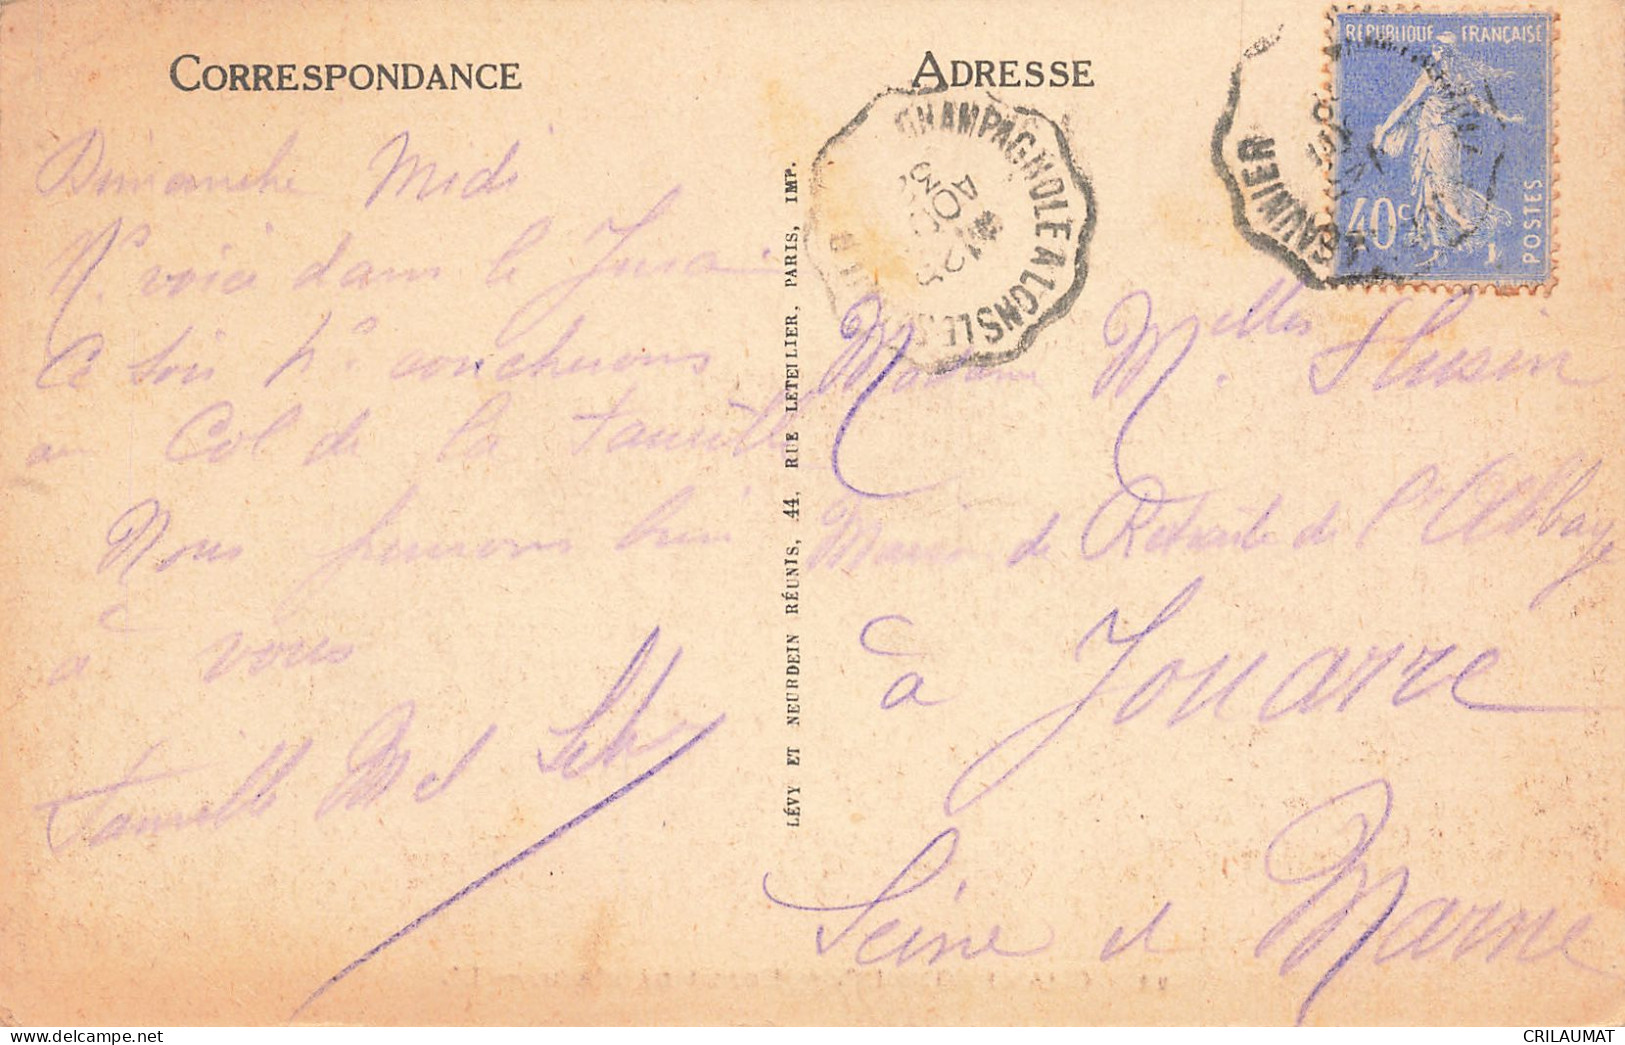 CORRESPONDANCE
Dimanche Midi
Ns voici dans le Jura
Ce soir ns coucherons
au Col de la Faucille
Nous pensons bien
à vous
Famille M et
LÉVY ET NEURDEIN RÉUNIS, 44, RUE LETELLIER, PARIS, IMP.
ADRESSE
CHAMPAGNOLE A LONS LE
SAUNIER
RÉPUBLIQUE FRANÇAISE
40c
POSTES
Madame Melles
Maison de Retraite de l'Abbaye
à Jouarre
Seine et Marne
CRILAUMAT